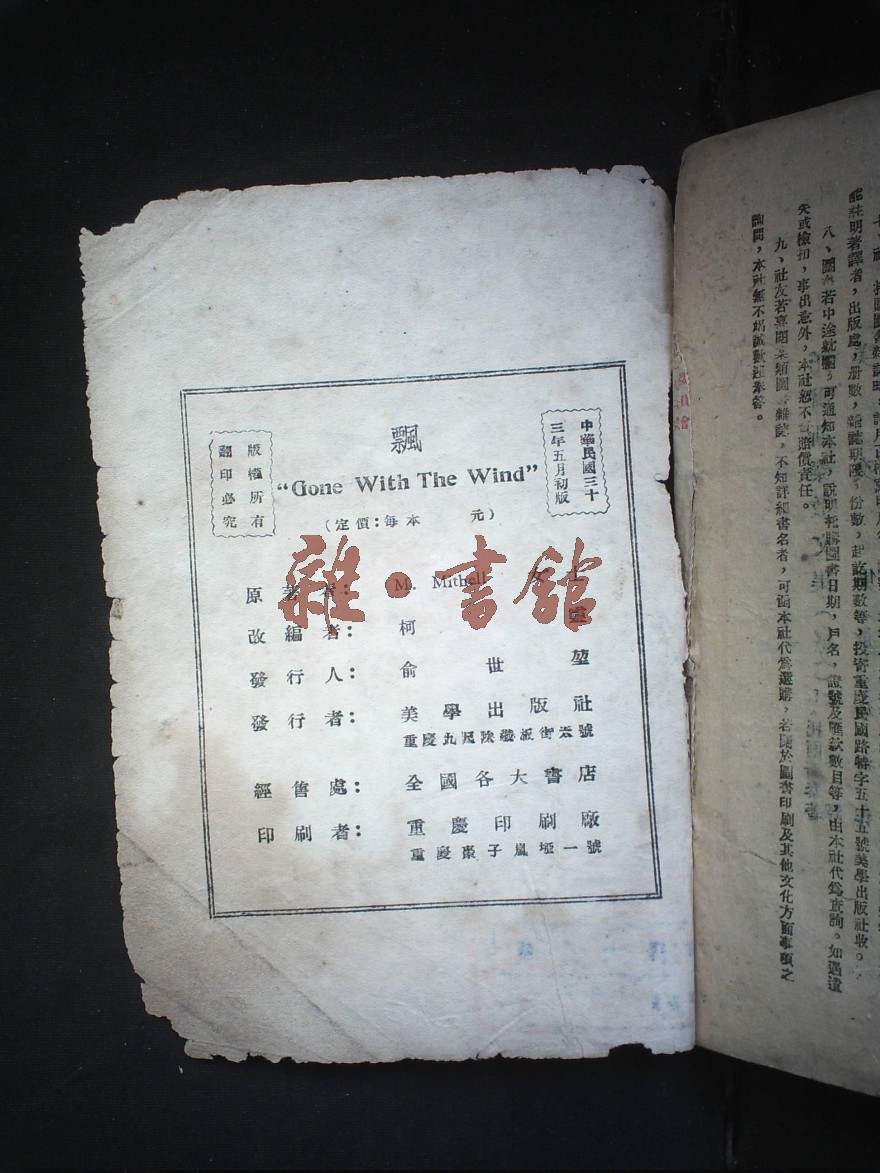 飄
"Gone With The Wind"
(定價：每本 元)
版權所有
翻印必究
中華民國三十
三年五月初版
原著者： M. Mithell 女士
改編者： 柯靈
發行人： 俞世堃
發行者： 美學出版社
重慶九尺坎 街 號
經售處： 全國各大書店
印刷者： 重慶印刷廠
重慶棗子嵐埡一號
雜·書館
能註明著譯者，出版處，册數，雜誌期限，份數，起訖期數等，投寄重慶民國路特字五十五號美學出版社收。
八、圖書若中途 ，可通知本社，說明托購圖書日期，戶名，證號及匯款數目等，由本社代為查詢。如遇遺
失或檢扣，事出意外，本社恕不負賠償責任。
九、社友若喜閱某類圖書雜誌，不知詳細書名者，可函本社代為選購，若關於圖書印刷及其他文化方面事項之
詢問，本社無不竭誠歡迎奉答。